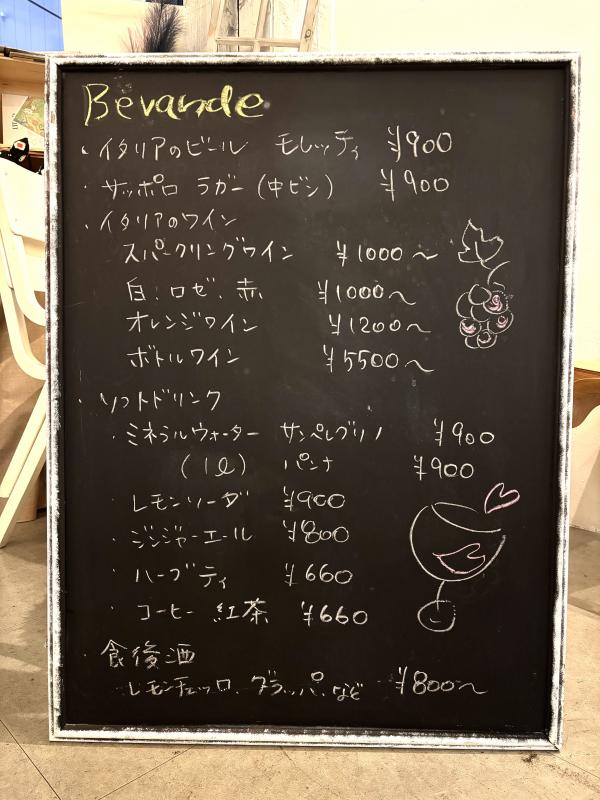 Bevande
・イタリアのビール モレッティ ¥900
・サッポロ ラガー(中ビン) ¥900
・イタリアのワイン
スパークリングワイン ¥1000〜
白、ロゼ、赤 ¥1000〜
オレンジワイン ¥1200〜
ボトルワイン ¥5500〜
・ソフトドリンク
・ミネラルウォーター サンペレグリノ ¥900
(1ℓ) パンナ ¥900
・レモンソーダ ¥900
・ジンジャーエール ¥800
・ハーブティ ¥660
・コーヒー 紅茶 ¥660
・食後酒
レモンチェッロ、グラッパ、など ¥800〜